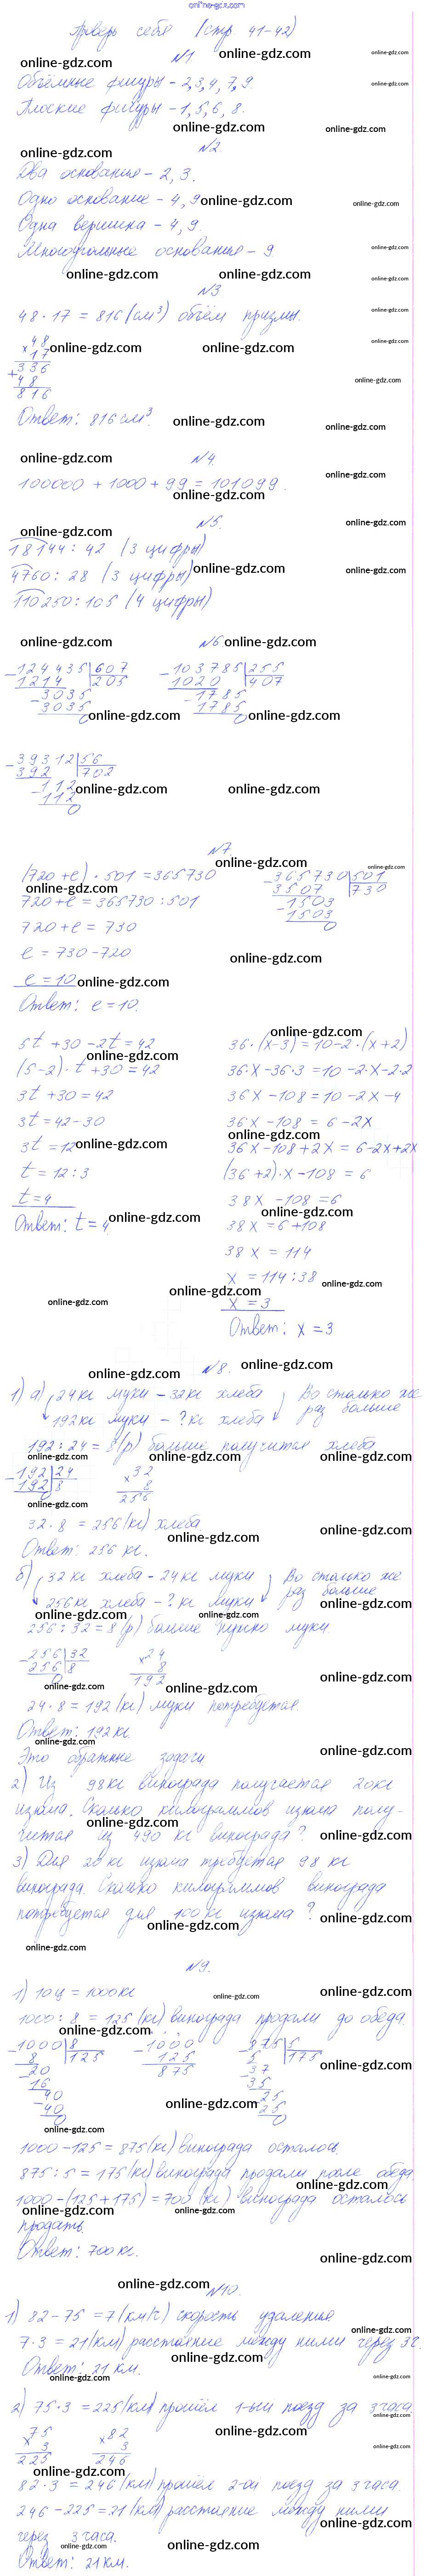 online-gdz.com
Проверь себя (стр 41-42)
№1
Объёмные фигуры - 2,3,4,7,9
Плоские фигуры - 1,5,6,8.
№2.
Два основания - 2,3.
Одно основание - 4,9
Одна вершина - 4,9.
Многоугольные основания - 9
№3
48·17 = 816 (см³) объём призмы.
×48
17
+336
48
816
Ответ: 816 см³.
№4.
100000 + 1000 + 99 = 101099.
№5.
18144 : 42 (3 цифры)
4760 : 28 (3 цифры)
110250 : 105 (4 цифры)
№6.
-124435|607 -103785|255
1214 |205 1020 |407
-3035 -1785
3035 1785
0 0
-39312|56
392 |702
-112
112
0
№7
(720+е)·501 = 365730 -365730|501
720+е = 365730 : 501 3507 |730
720+е = 730 -1503
е = 730-720 1503
е = 10 0
Ответ: е = 10.
5t + 30 - 2t = 42
(5-2)·t + 30 = 42
3t + 30 = 42
3t = 42-30
3t = 12
t = 12 : 3
t = 4
Ответ: t = 4
36·(x-3) = 10-2·(x+2)
36·x-36·3 = 10-2·x-2·2
36x-108 = 10-2x-4
36x-108 = 6-2x
36x-108+2x = 6-2x+2x
(36+2)·x-108 = 6
38x-108 = 6
38x = 6+108
38x = 114
x = 114 : 38
x = 3
Ответ: x = 3
№8.
1) а) 24 кг муки - 32 кг хлеба Во столько же
192 кг муки - ? кг хлеба раз больше
192 : 24 = 8 (р) больше получится хлеба
-192|24 ×32
192|8 8
0 256
32·8 = 256 (кг) хлеба
Ответ: 256 кг.
б) 32 кг хлеба - 24 кг муки Во столько же
256 кг хлеба - ? кг муки раз больше
256 : 32 = 8 (р) больше нужно муки
-256|32 ×24
256|8 8
0 192
24·8 = 192 (кг) муки потребуется.
Ответ: 192 кг.
Это обратные задачи
2) Из 98 кг винограда получается 20 кг
изюма. Сколько килограммов изюма полу-
чится из 490 кг винограда?
3) Для 20 кг изюма требуется 98 кг
винограда. Сколько килограммов винограда
потребуется для 100 кг изюма?
№9.
1) 10 ц = 1000 кг
1000 : 8 = 125 (кг) винограда продали до обеда.
-1000|8 -1000 -875|5
8 |125 125 5 |175
-20 875 -37
16 35
-40 -25
40 25
0 0
1000-125 = 875 (кг) винограда осталось
875 : 5 = 175 (кг) винограда продали после обеда.
1000-(125+175) = 700 (кг) винограда осталось
продать.
Ответ: 700 кг.
№10.
1) 82-75 = 7 (км/ч) скорость удаления
7·3 = 21 (км) расстояние между ними через 3 ч.
Ответ: 21 км.
2) 75·3 = 225 (км) прошёл 1-ый поезд за 3 часа
×75 ×82
3 3
225 246
82·3 = 246 (км) прошёл 2-ой поезд за 3 часа.
246-225 = 21 (км) расстояние между ними
через 3 часа.
Ответ: 21 км.